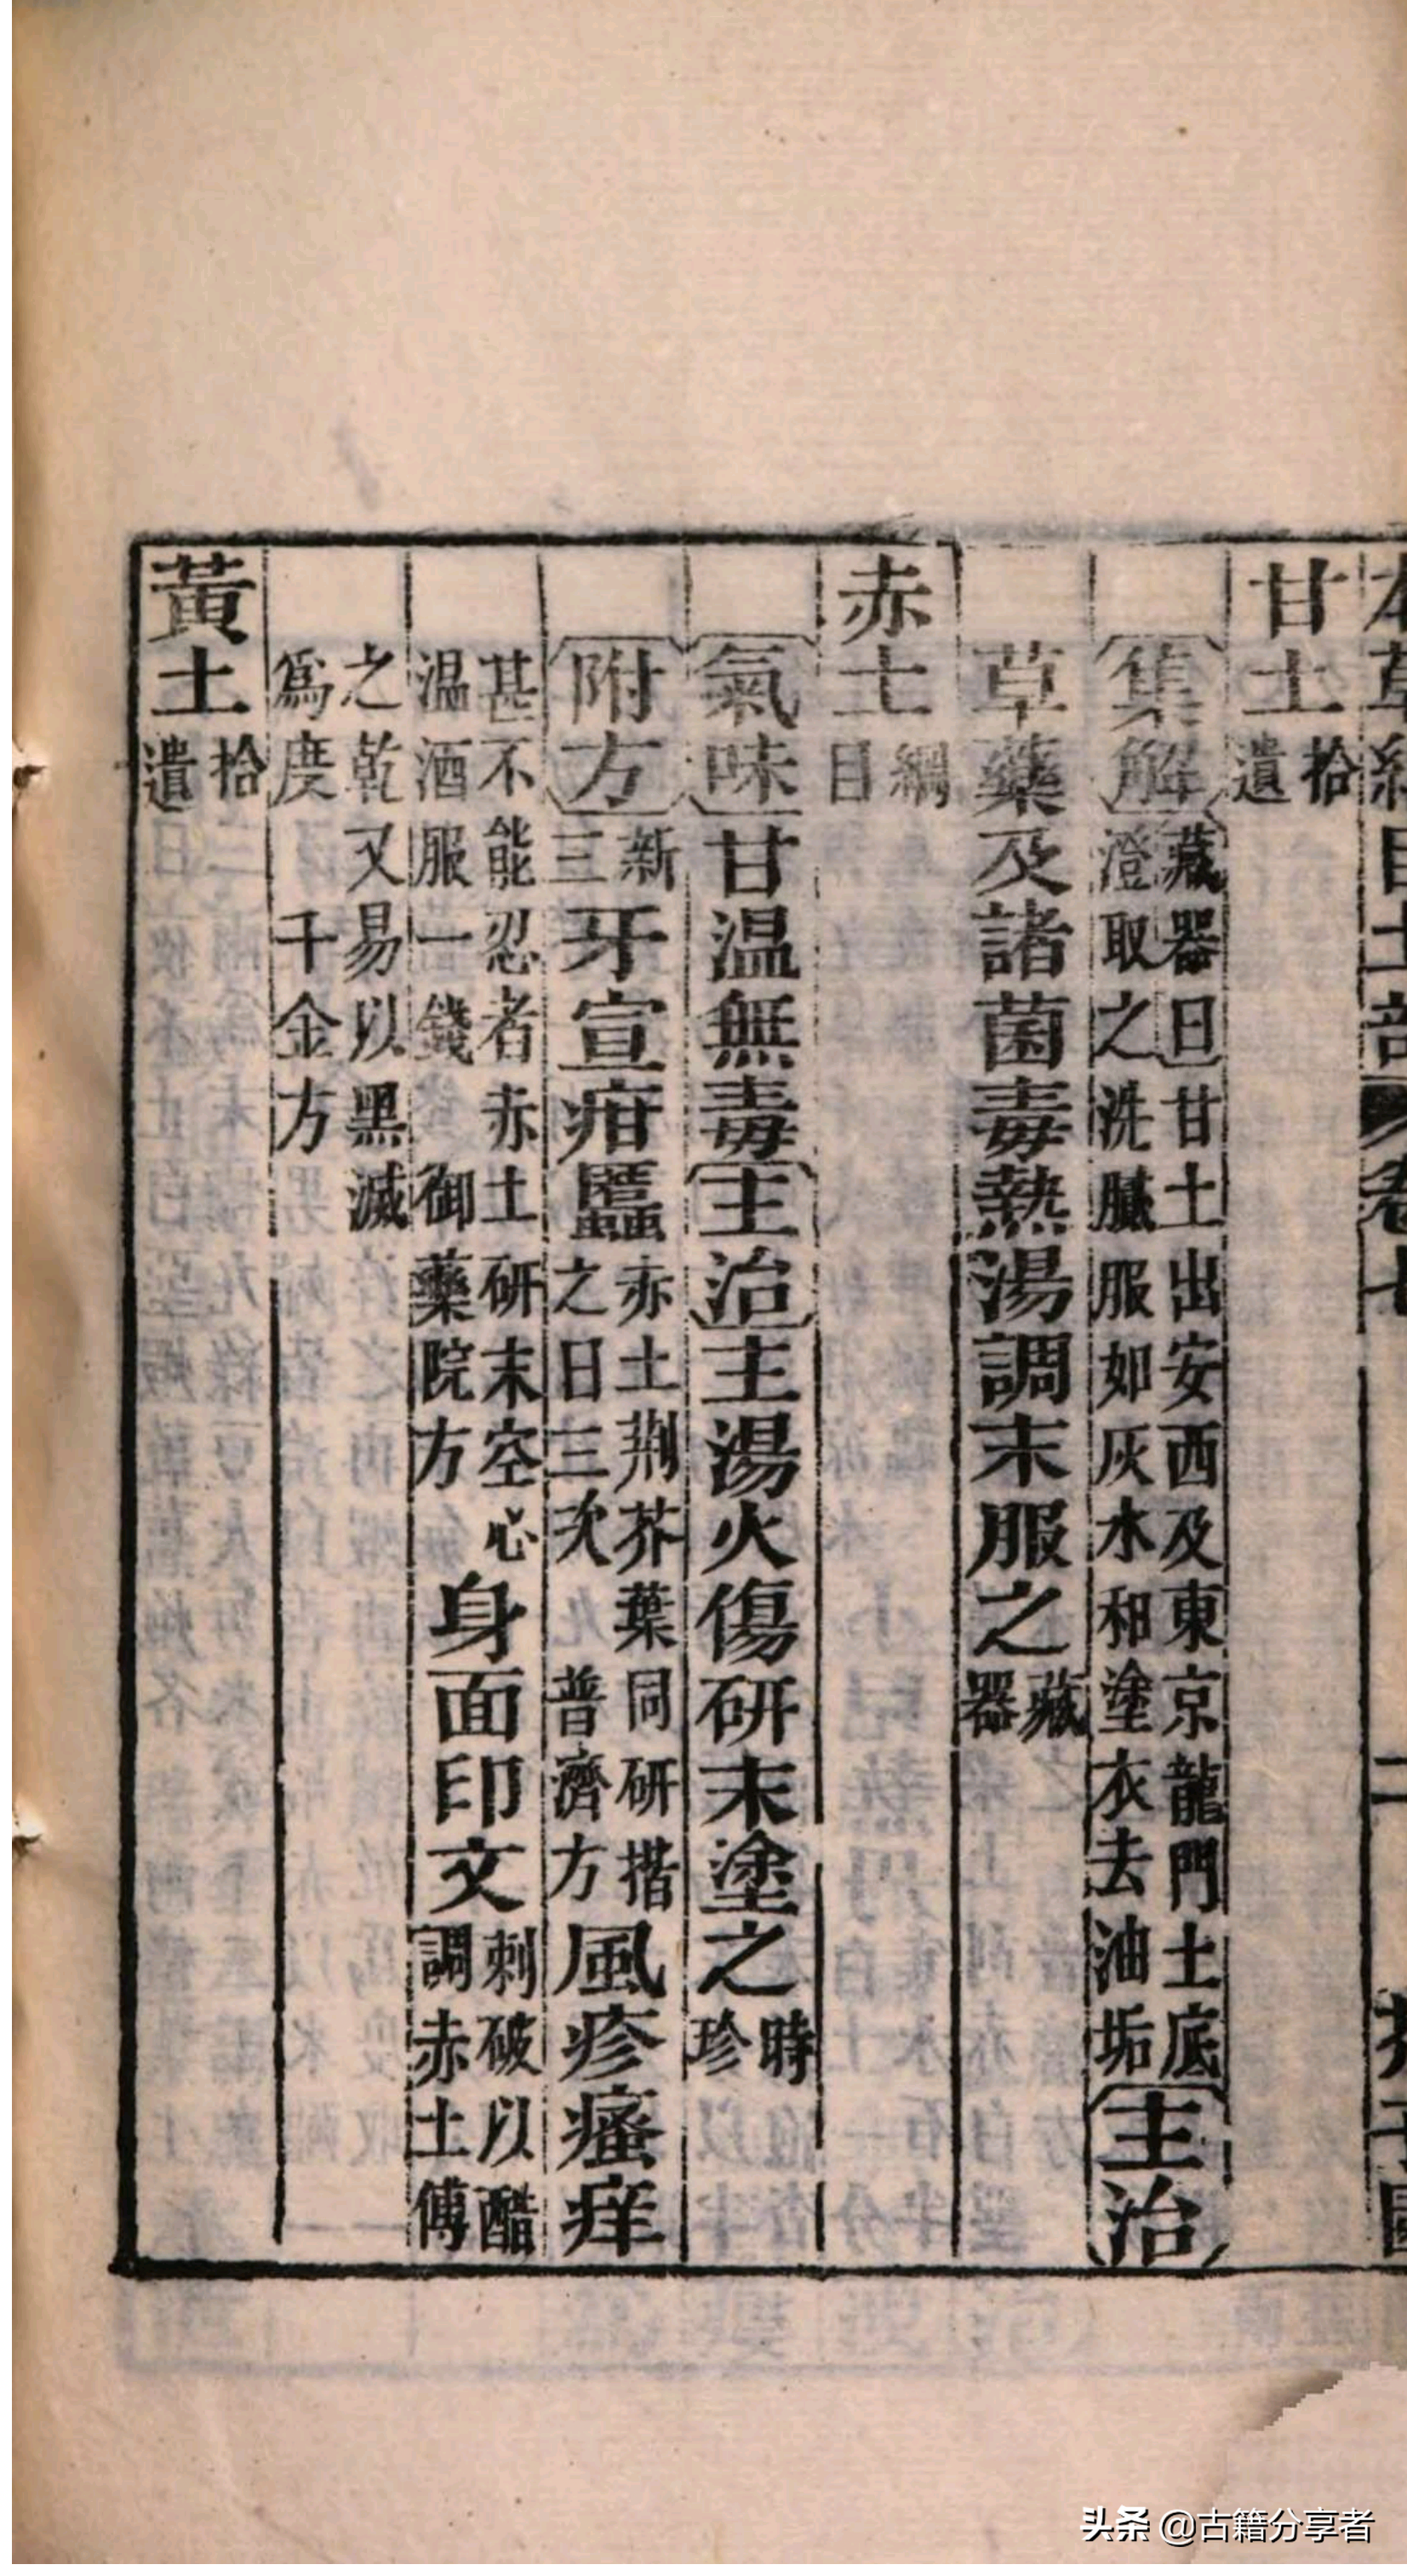 本草綱目土部 卷七 二
甘土拾遺
集解藏器曰甘土出安西及東京龍門土底澄取之洗膩服如灰水和塗衣去油垢主治
草藥及諸菌毒熱湯調末服之藏器
赤土綱目
氣味甘温無毒主治主湯火傷研末塗之時珍
附方新三牙宣疳䘌赤土荆芥葉同研揩之日三次普濟方風疹瘙痒
甚不能忍者赤土研末空心温酒服一錢御藥院方身面印文刺破以醋調赤土傅
之乾又易以黑滅爲度千金方
黃土拾遺
头条 @古籍分享者